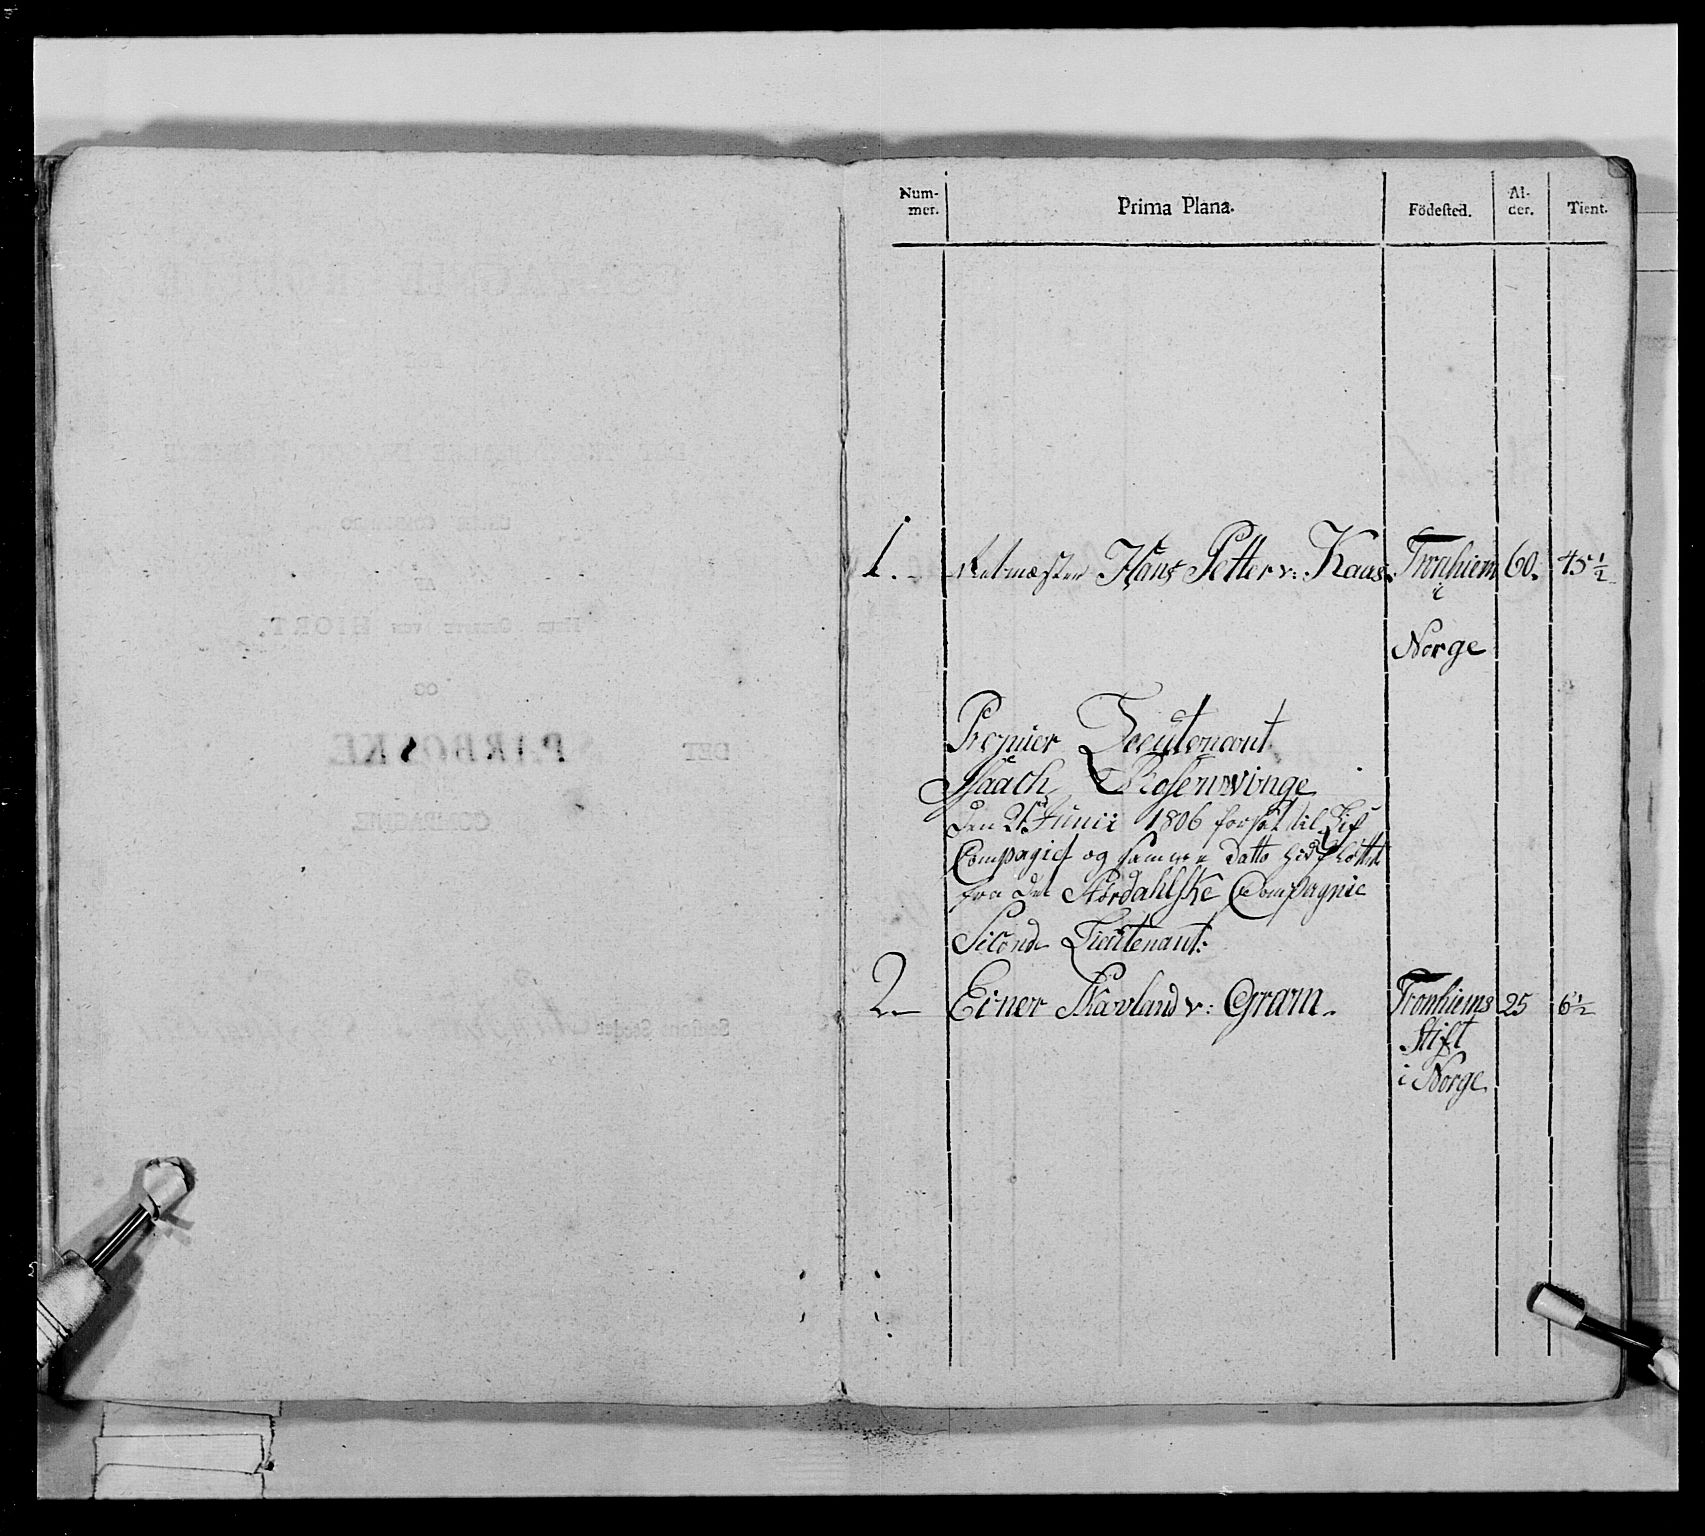 Num-
mer.
Prima Plana.
Födested.
Al-
der.
Tient.
1. Ritmæster Hans Petter v: Kaas. Tronhiem 60. 45½
i
Norge
Premier Lieutenant
Isaach Rosenwinge
Den 21 Junii 1806 forsat til Lif
Compagiet og samme Datto
fra det Stördahlske Compagnie
Second Lieutenant:
2 Einer v: Gram. Tronhiems 25 6½
Stift
i Norge